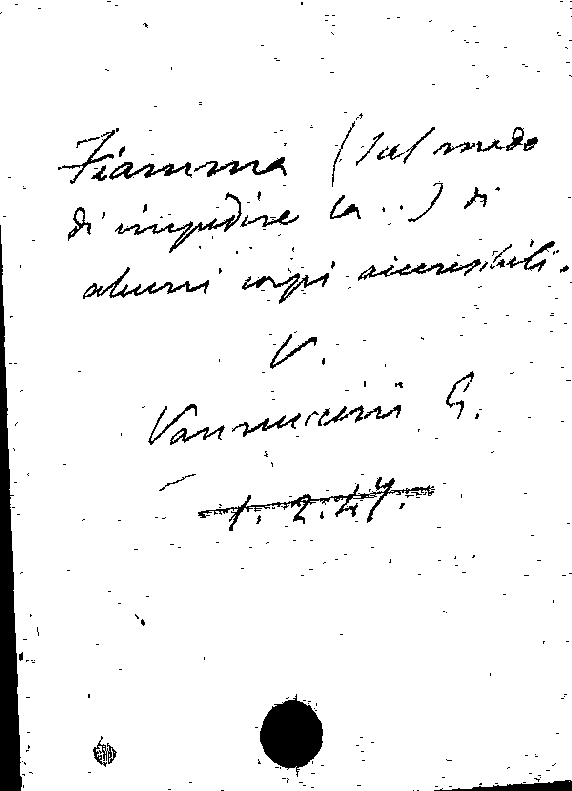 Fiamma (Sul modo
di impedire la..) di
alcuni corpi accensibili.
V.
Vannuccini G.
1. 2. 47.